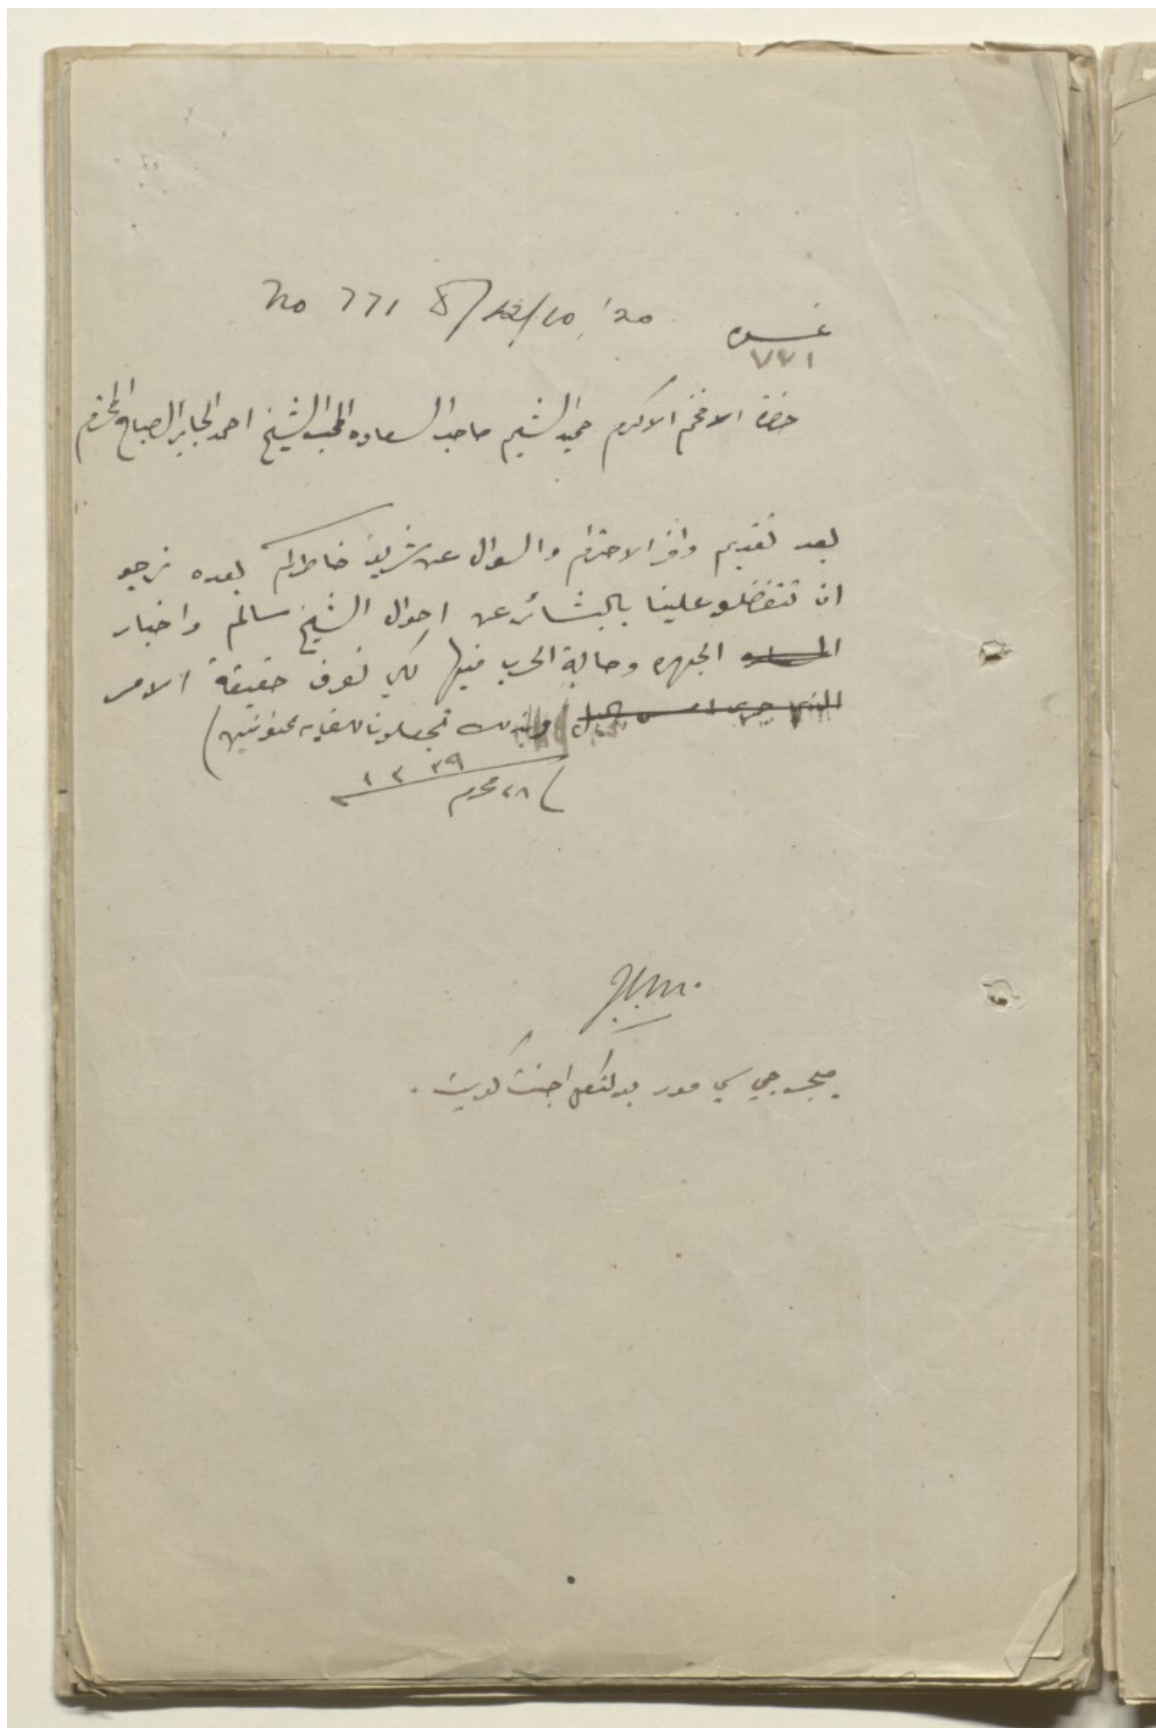 No 771 8/12/10, '20
نمره
٧٧١
حضرة الافخم الاكرم حميد الشيم صاحب السعاده المحب الشيخ احمد الجابر الصباح المحترم
بعد تقديم وافر الاحترام والسوال عن شريف خاطركم بعده نرجو
ان تتفضلو علينا بالبشائر عن احوال الشيخ سالم واخبار
الجهره وحالة الحرب فيها لكي نعرف حقيقة الامر
الذي جرى امس وبذلك تجعلونا للغايه ممنونين
٢٨ محرم ١٣٣٩
J.C.M.
ميجر جي سي مور بولتكل اجنت كويت.